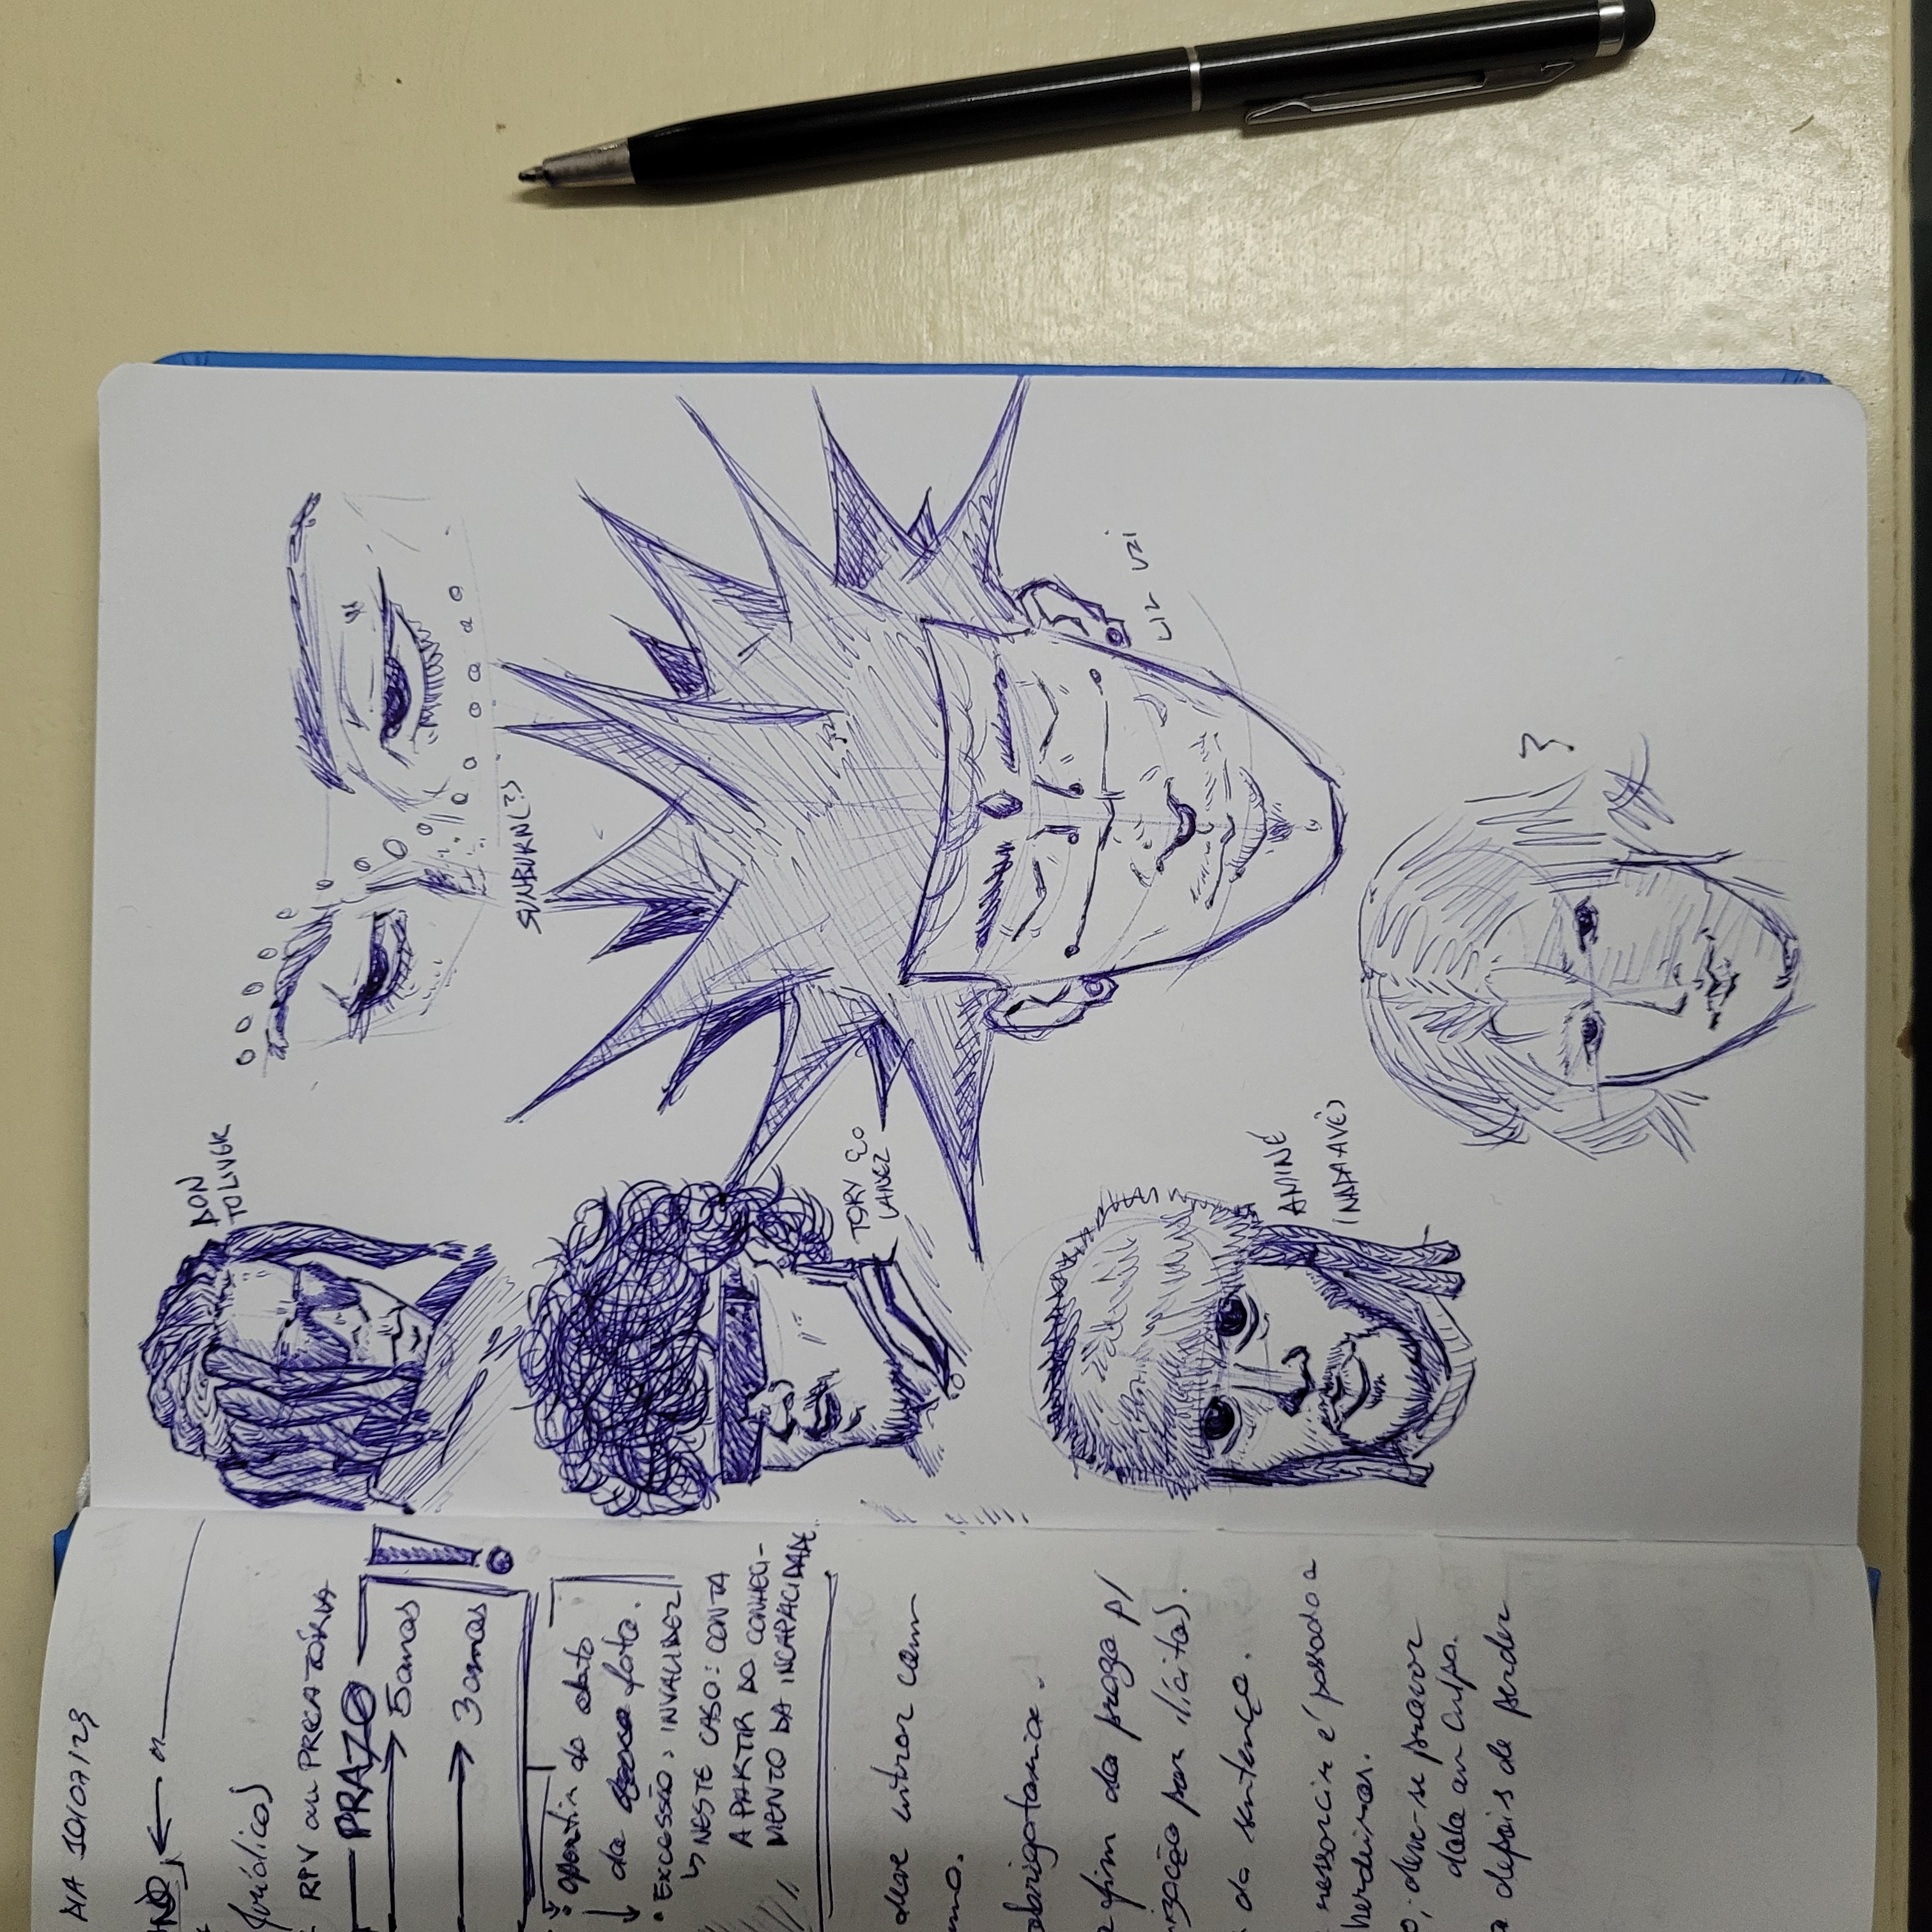 NA 10/07/23
Jurídica)
RPV ou PRECATÓRIA
PRAZO
5 anos
3 anos
apartir do
da fato.
• EXCESSÃO: INVALIDEZ
↳ NESTE CASO: CONTA
A PARTIR DO CONHECI-
MENTO DA INCAPACIDADE.
deve entrar com
obrigatoria.
fim do prazo p/
por ilícitos).
da sentença.
ressarcir é passado a
herdeiros.
deve-se provar
dolo ou culpa.
depois de perder
DON
TOLIVER
SUNBURN(?)
TORY
LANEZ
LIL UZI
AMINÉ
?